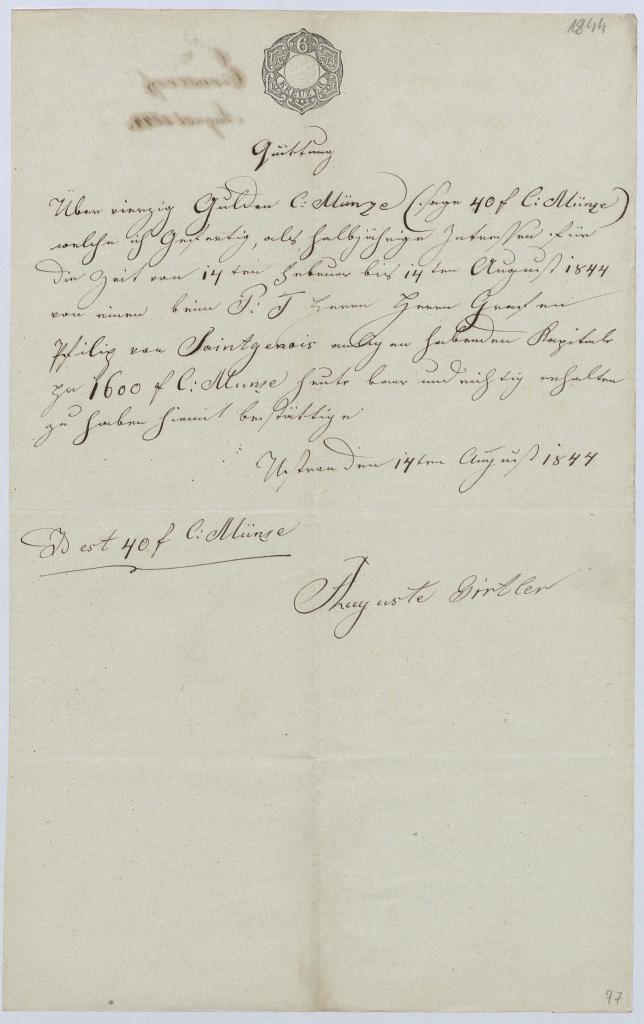 1844
6
KREUZER
Quittung
Über vierzig Gulden C: Münze (sage 40 f C: Münze)
welche ich Gefertig, als halbjährige Interessen für
die Zeit von 14 ten Februar bis 14 ten August 1844
von einen beim P: T Herrn Herrn Grafen
Philip von Saintgenois anligen habenden Kapitals
pr 1600 f C: Munze heute baar und richtig erhalten
zu haben hiemit bestättige
Ustron den 14ten August 1844
Id est 40 f C: Münze
Auguste Girtler
77